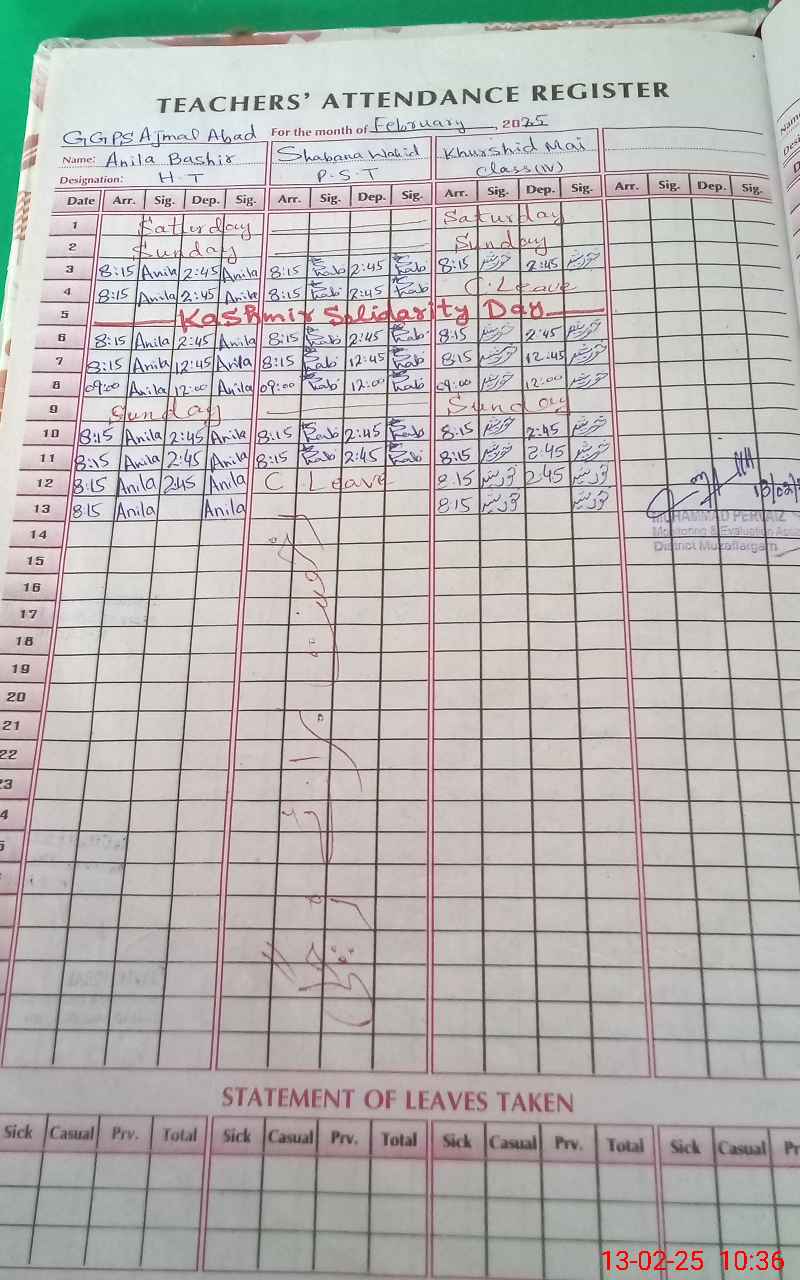 TEACHERS' ATTENDANCE REGISTER
GGPS Ajmal Abad For the month of February, 2025
Name: Anila Bashir Shabana Wahid Khurshid Mai
Designation: H.T P.S.T Class(IV)
Date Arr. Sig. Dep. Sig. Arr. Sig. Dep. Sig. Arr. Sig. Dep. Sig. Arr. Sig. Dep. Sig.
1 Saturday Saturday
2 Sunday Sunday
3 8:15 Anila 2:45 Anila 8:15 2:45 8:15 خورشید 2:45 خورشید
4 8:15 Anila 2:45 Anila 8:15 2:45 C.Leave
5 Kashmir Solidarity Day
6 8:15 Anila 2:45 Anila 8:15 2:45 8:15 خورشید 2:45 خورشید
7 8:15 Anila 12:45 Anila 8:15 12:45 8:15 خورشید 12:45 خورشید
8 09:00 Anila 12:00 Anila 09:00 12:00 09:00 خورشید 12:00 خورشید
9 Sunday Sunday
10 8:15 Anila 2:45 Anila 8:15 2:45 8:15 خورشید 2:45 خورشید
11 8:15 Anila 2:45 Anila 8:15 2:45 8:15 خورشید 2:45 خورشید
12 8:15 Anila 2:45 Anila C Leave 8:15 خورشید 2:45 خورشید
13 8:15 Anila Anila 8:15 خورشید خورشید
MUHAMMAD PERVAIZ
Monitoring & Evaluation
District Muzaffargarh
14
15
16
17
18
19
20
21
22
23
4
5
STATEMENT OF LEAVES TAKEN
Sick Casual Prv. Total Sick Casual Prv. Total Sick Casual Prv. Total Sick Casual
13-02-25 10:36